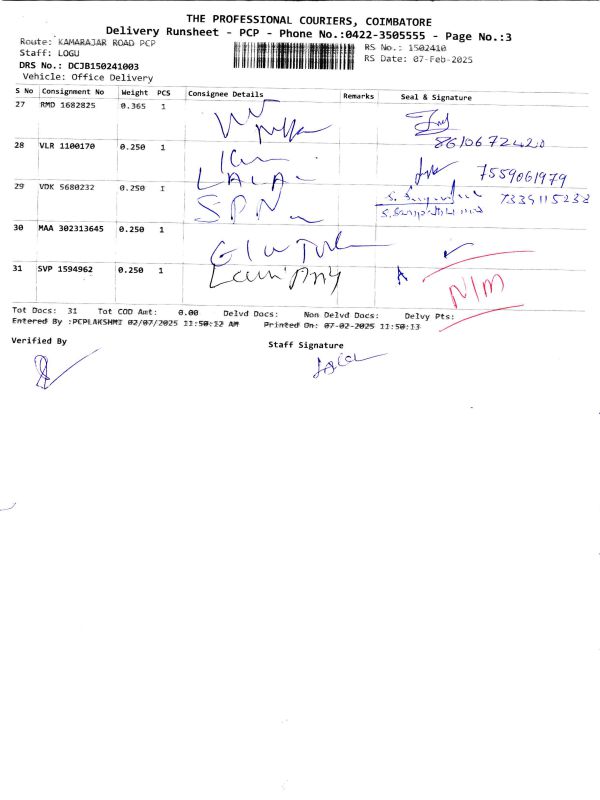 THE PROFESSIONAL COURIERS, COIMBATORE
Delivery Runsheet - PCP - Phone No.:0422-3505555 - Page No.:3
Route: KAMARAJAR ROAD PCP
RS No.: 1502410
Staff: LOGU
RS Date: 07-Feb-2025
DRS No.: DCJB150241003
Vehicle: Office Delivery
S No Consignment No Weight PCS Consignee Details Remarks Seal & Signature
27 RMD 1682825 0.365 1
8610672420
28 VLR 1100170 0.250 1
LALA
7559061979
29 VDK 5680232 0.250 1 SPN
7339115238
30 MAA 302313645 0.250 1
31 SVP 1594962 0.250 1
N/M
Tot Docs: 31 Tot COD Amt: 0.00 Delvd Docs: Non Delvd Docs: Delvy Pts:
Entered By :PCPLAKSHMI 02/07/2025 11:50:12 AM Printed On: 07-02-2025 11:50:13
Verified By
Staff Signature